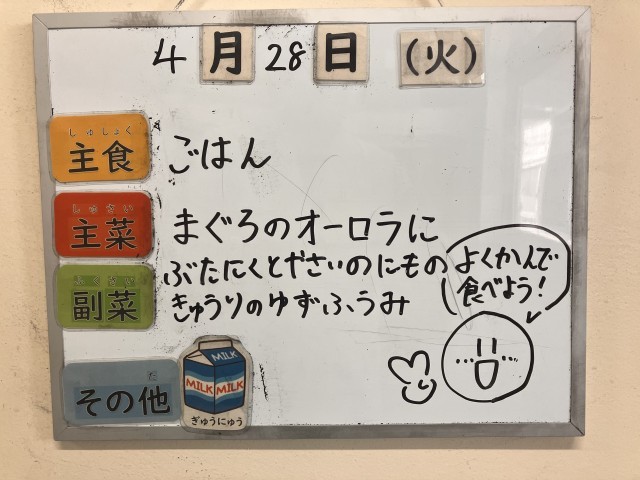 4月28日(火)
しゅしょく
主食
ごはん
しゅさい
主菜
まぐろのオーロラに
副菜
ぶたにくとやさいのにもの
きゅうりのゆずふうみ
よくかんで
食べよう!
た
その他
MILK
MILK MILK
ぎゅうにゅう